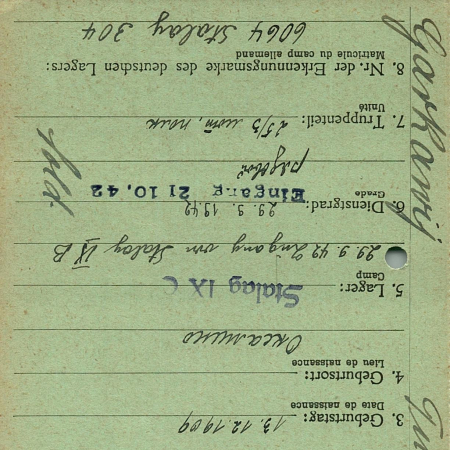 3. Geburtstag: 13.12.1909
Date de naissance
4. Geburtsort:
Lieu de naissance
5. Lager: Stalag IX C
Camp
29.9.42 Zugang von Stalag IX B
6. Dienstgrad: 29.9.1942
Grade
Eingang 21 10. 42
рядовой
7. Truppenteil: полк
Unité
8. Nr. der Erkennungsmarke des deutschen Lagers:
Matricule du camp allemand
6064 Stalag 304
Gorkawij
Sold.